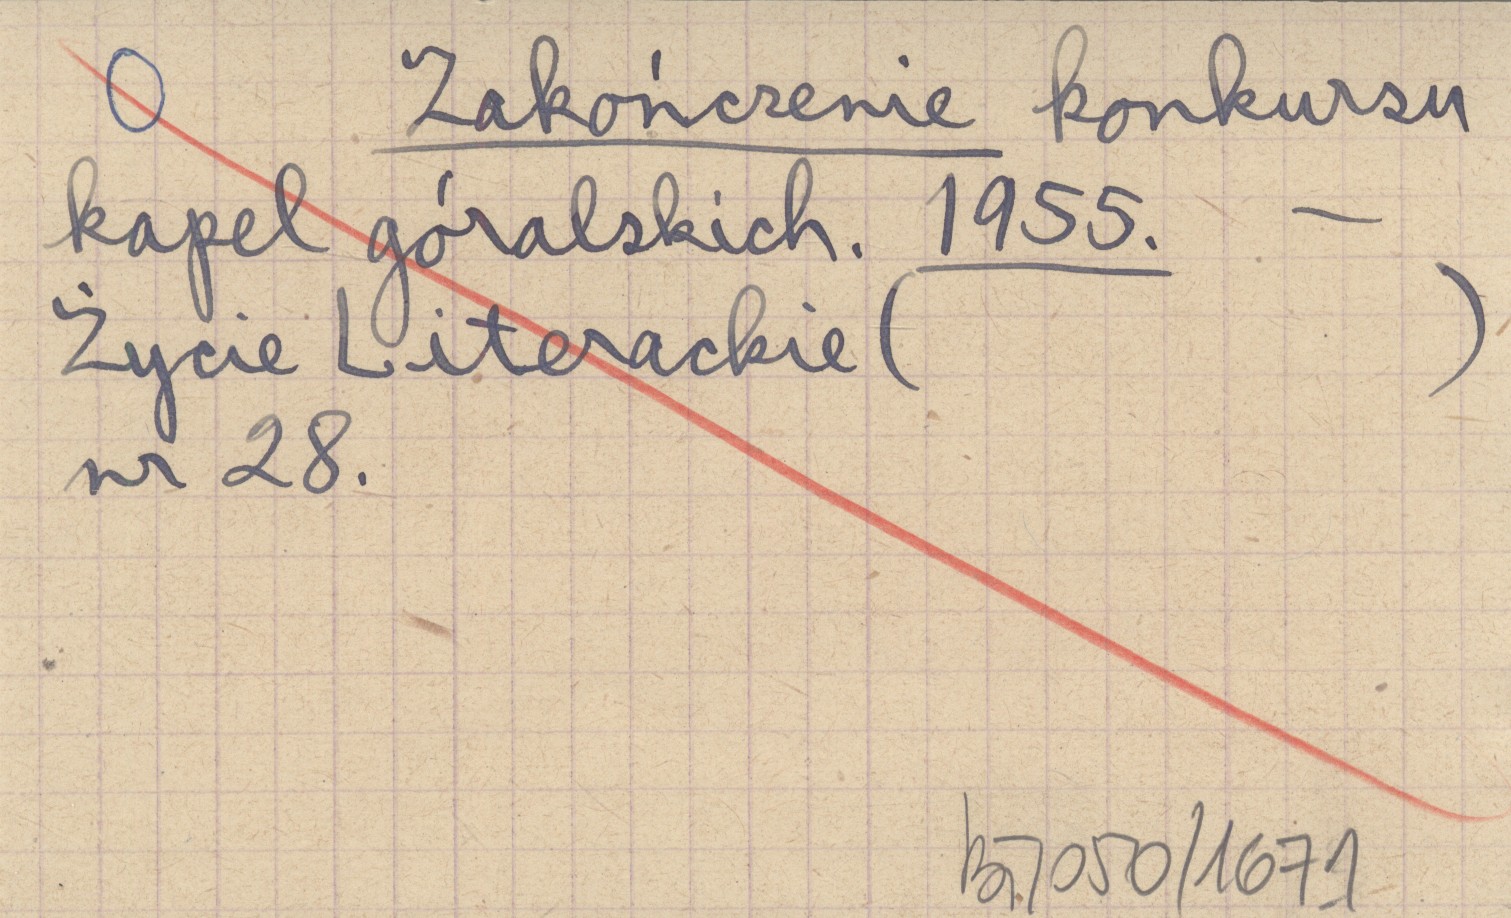 O Zakończenie konkursu
kapel góralskich. 1955. —
Życie Literackie ( )
nr 28.
7050/1671